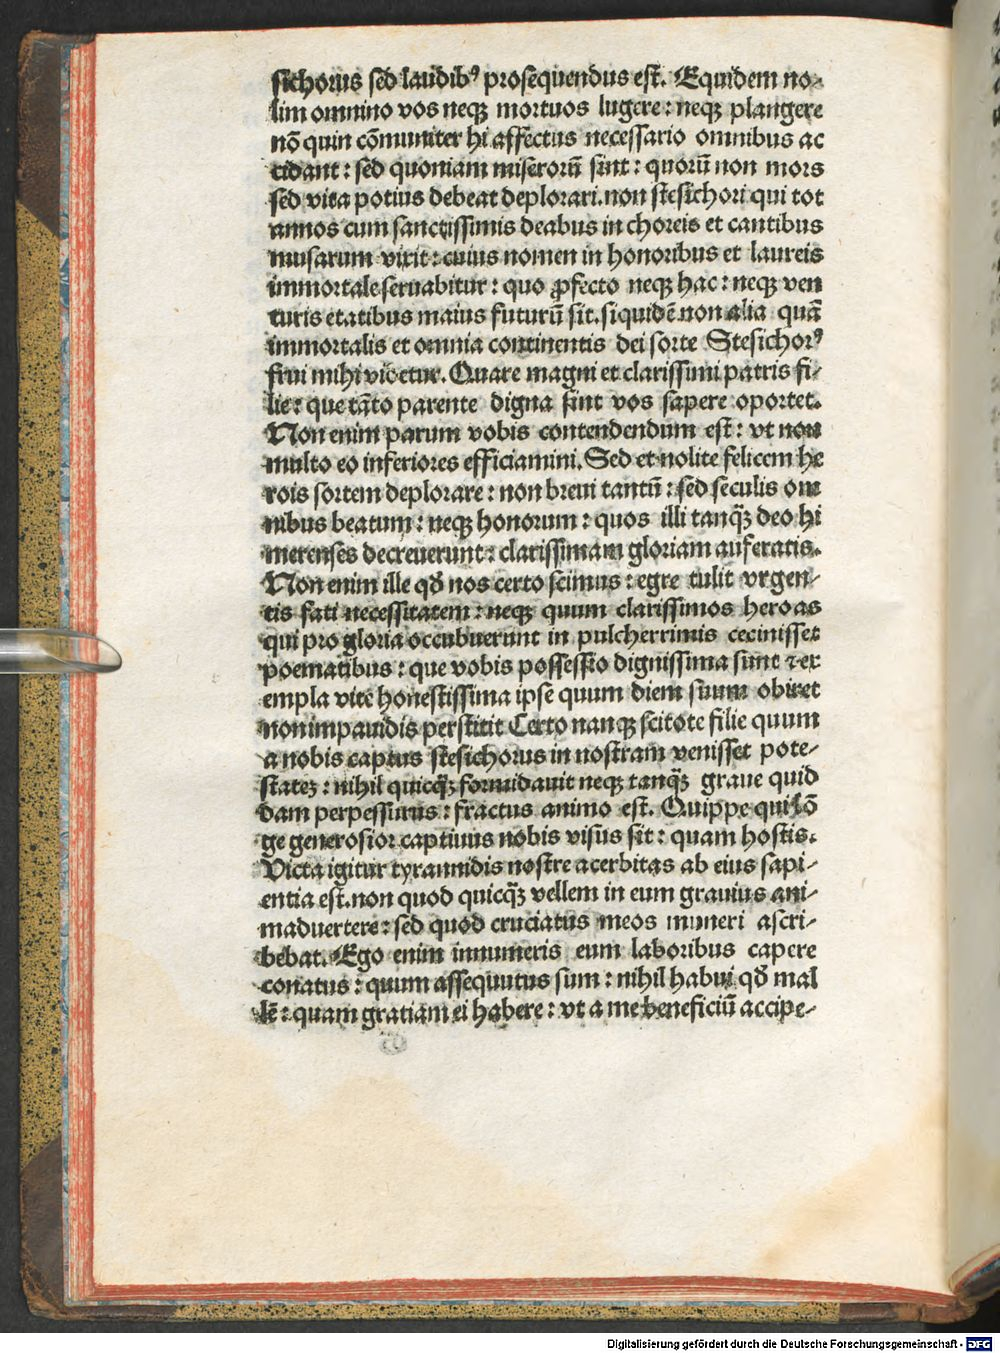 sichorus sed laudibꝰ prosequendus est. Equidem no-
lim omnino vos neqꝫ mortuos lugere: neqꝫ plangere
nō quin cōmuniter hi affectus necessario omnibus ac
cidant: sed quoniam miserorū sint: quorū non mors
sed vita potius debeat deplorari. non stesichori qui tot
annos cum sanctissimis deabus in choreis et cantibus
musarum vixit: cuius nomen in honoribus et laureis
immortale seruabitur: quo ꝓfecto neqꝫ hac: neqꝫ ven
turis etatibus maius futurū sit. siquidē non alia quā
immortalis et omnia continentis dei sorte Stesichorꝰ
frui mihi videtur. Quare magni et clarissimi patris fi-
lie: que tāto parente digna sint vos sapere oportet.
Non enim parum vobis contendendum est: vt non
multo eo inferiores efficiamini. Sed et nolite felicem he
rois sortem deplorare: non breui tantū: sed seculis om
nibus beatum: neqꝫ honorum: quos illi tanqꝫ̄ deo hi
merenses decreuerunt: clarissimam gloriam auferatis.
Non enim ille qđ nos certo scimus: egre tulit vrgen-
tis fati necessitatem: neqꝫ quum clarissimos heroas
qui pro gloria occubuerunt in pulcherrimis cecinisset
poematibus: que vobis possessio dignissima sunt ⁊ ex
empla vite honestissima ipse quum diem suum obiret
non impauidis perstitit Certo nanqꝫ scitote filie quum
a nobis captus stesichorus in nostram venisset pote-
statēꝫ: nihil quicqꝫ̄ formidauit neqꝫ tanqꝫ̄ graue quid
dam perpessurus: fractus animo est. Quippe qui lō
ge generosior captiuus nobis visus sit: quam hostis.
Victa igitur tyrannidis nostre acerbitas ab eius sapi-
entia est. non quod quicqꝫ̄ vellem in eum grauius ani-
maduertere: sed quod cruciatus meos muneri ascri-
bebat. Ego enim innumeris eum laboribus capere
conatus: quum assequutus sum: nihil habui qđ mal
lē: quam gratiam ei habere: vt a me beneficiū accipe-
Digitalisierung gefördert durch die Deutsche Forschungsgemeinschaft - DFG